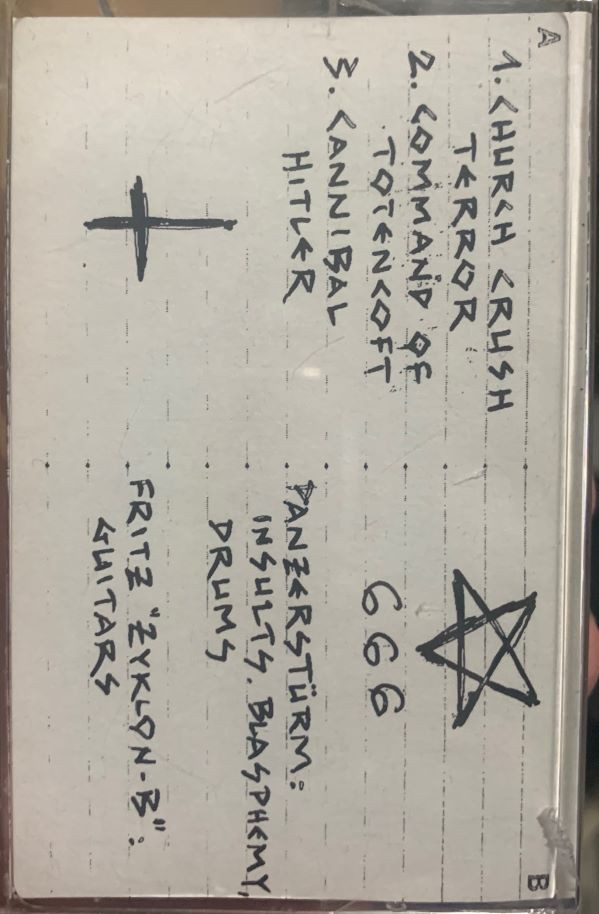 A
1. CHURCH CRUSH
TERROR
2. COMMAND OF
TOTENCOFT
3. CANNIBAL
HITLER
B
666
PANZERSTÜRM:
INSULTS, BLASPHEMY,
DRUMS
FRITZ "ZYKLON-B":
GUITARS